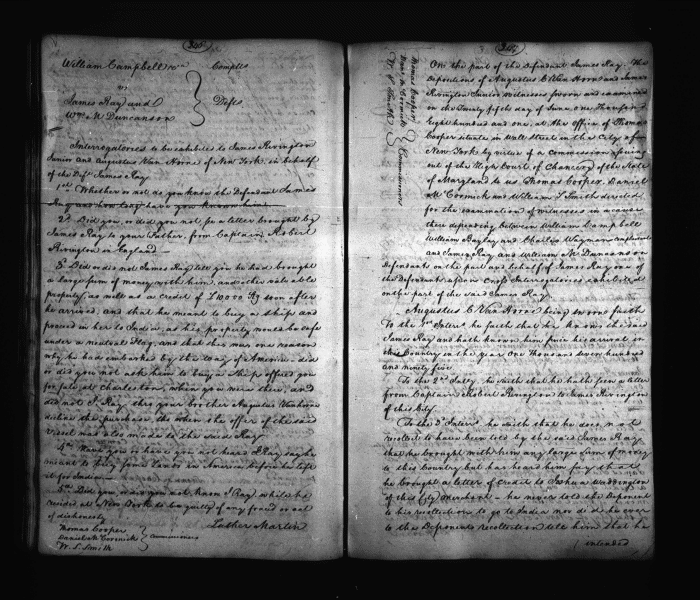 William Campbell
Complts
vs
James Ray and
Wm. M. Duncanson
Defts
Interrogatories to be exhibited to James Rivington
Junior and Augustus Van Horne of New York in behalf
of the Deft James Ray
1st Whether or not do you know the Defendant James
Ray and how long have you known him
2d Did you, or did you not, see a letter brought by
James Ray to your Father, from Captain Robert
Rivington in England
3d Did or did not James Ray tell you he had brought
a large sum of money with him, and other valuable
property, as well as a credit of £10000 Stg soon after
he arrived, and that he meant to buy a Ship and
proceed in her to India, as his property would be safe
under a neutral Flag, and that this was one reason
why he had embarked by the way of America - did
or did you not ask him to buy a Ship offered you
for sale at Charleston, when you were there, and
did not J. Ray thro your brother Augustus Vanhorne
decline the purchase, the when the offer of the said
Vessel was also made to the said Ray
4th Have you or have you not heard J Ray say he
meant to buy some lands in America before he left
it for India
5th Did you or did you not know J Ray while he
resided at New York to be guilty of any fraud or act
of dishonesty
Luther Martin
Thomas Cooper
Daniel McCormick
W. S. Smith
Commissioners
Thomas Cooper
Daniel McCormick
W. S. Smith
Commissioners
On the part of the Defendant James Ray. The
Depositions of Augustus C Van Horne and James
Rivington Junior witnesses sworn and examined
on the Twenty fifth day of June one Thousand
Eight hundred and one, at the Office of Thomas
Cooper situate in Wall Street in the City of
New York by virtue of a commission issuing
out of the High Court of Chancery of the State
of Maryland to us Thomas Cooper, Daniel
McCormick and William S Smith directed
for the examination of witnesses in a cause
there depending between William Campbell
William Bayley and Charles Wayman Complainants
and James Ray and William M Duncanson
Defendants on the part and behalf of James Ray one of the
Defendants aforesd Cross Interrogatories exhibited
on the part of the said James Ray
Augustus C Van Horne being sworn saith
To the 1st Intery he saith that he knows the said
James Ray and hath known him since his arrival in
this Country in the year One Thousand seven hundred
and ninety five
To the 2d Intery he saith that he hath seen a letter
from Captain Robert Rivington to James Rivington
of this City
To the 3d Intery he saith that he does not
recollect to have been told by the said James Ray
that he brought with him any large sum of money
to this Country but has heard him say that
he brought a letter of Credit to Joshua Waddington
of this City merchant - he never told the Deponent
to his recollection to go to India nor did he ever
to the Deponents recollection tell him that he
intended